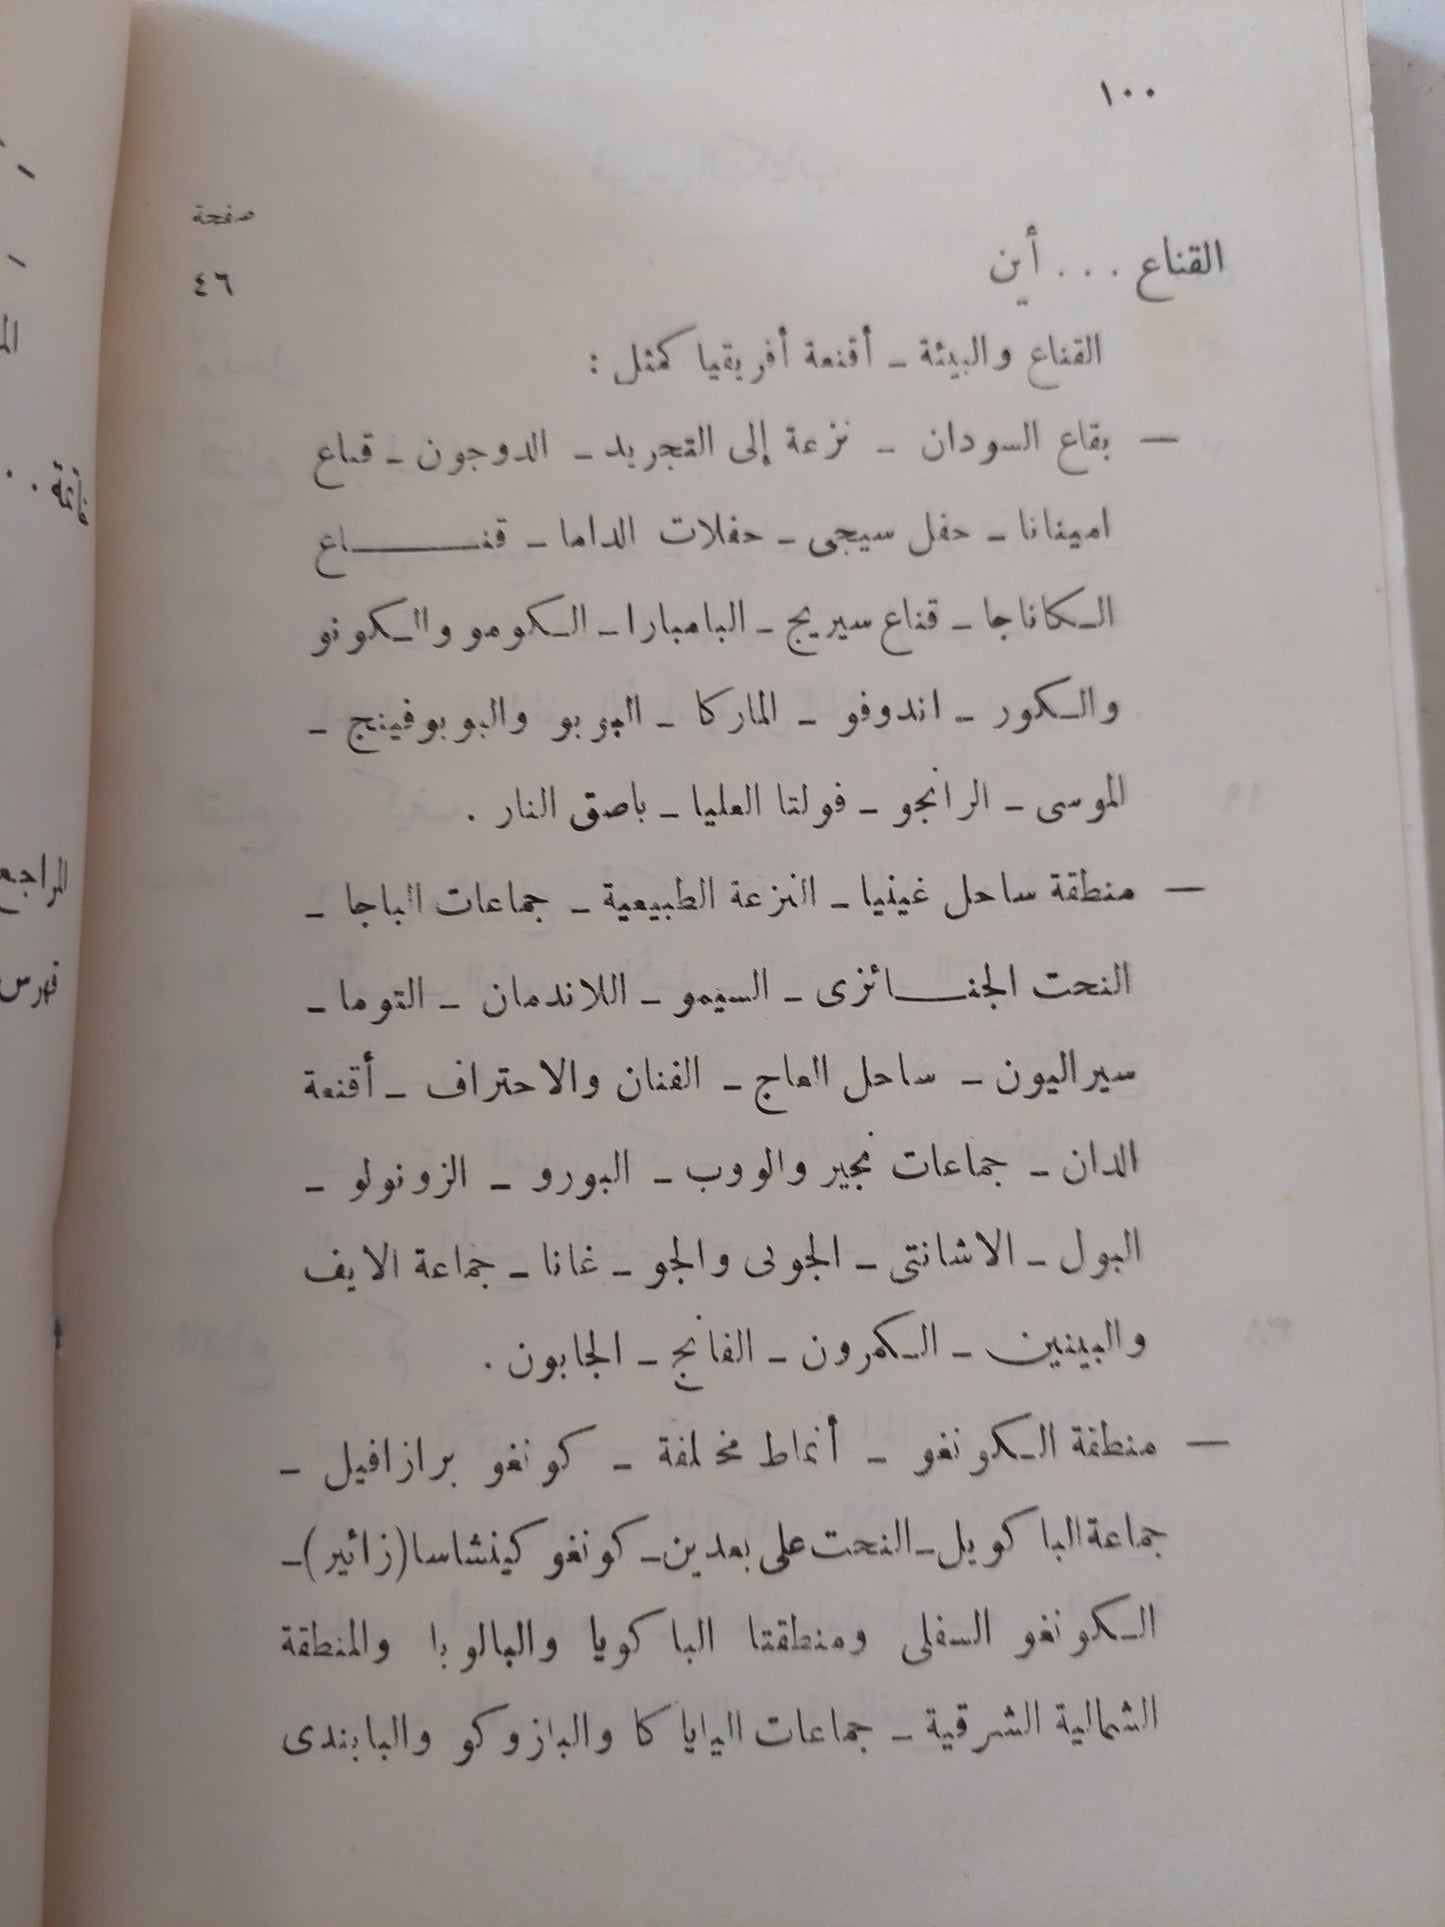 ١٠٠
صفحة
القناع . . . أين ٤٦
القناع والبيئة ــ أقنعة أفريقيا كمثل :
— بقاع السودان ــ نزعة إلى التجريد ــ الدوجون ــ قناع
امينانا ــ حفل سيجى ــ حفلات الداما ــ قنــــاع
الكاناجا ــ قناع سيريج ــ البامبارا ــ الكومو والكونو
والكور ــ اندوفو ــ الماركا ــ البوبو والبوبوفينج ــ
الموسى ــ الرانجو ــ فولتا العليا ــ باصق النار .
— منطقة ساحل غينيا ــ النزعة الطبيعية ــ جماعات الباجا ــ
النحت الجنــائزى ــ السيمو ــ اللاندمان ــ التوما ــ
سيراليون ــ ساحل العاج ــ الفنان والاحتراف ــ أقنعة
الدان ــ جماعات نجير والووب ــ البورو ــ الزونولو ــ
البول ــ الاشانتى ــ الجولى والجو ــ غانا ــ جماعة الايف
والبينين ــ الكمرون ــ الفانج ــ الجابون .
— منطقة الكونغو ــ أنماط مختلفة ــ كونغو برازافيل ــ
جماعة الباكويل ــ النحت على بعدين ــ كونغو كينشاسا (زائير) ــ
الكونغو السفلى ومنطقتا الباكوبا والبالوبا والمنطقة
الشمالية الشرقية ــ جماعات الياياكا والبازوكو والبابندى
المراجع
فهرس